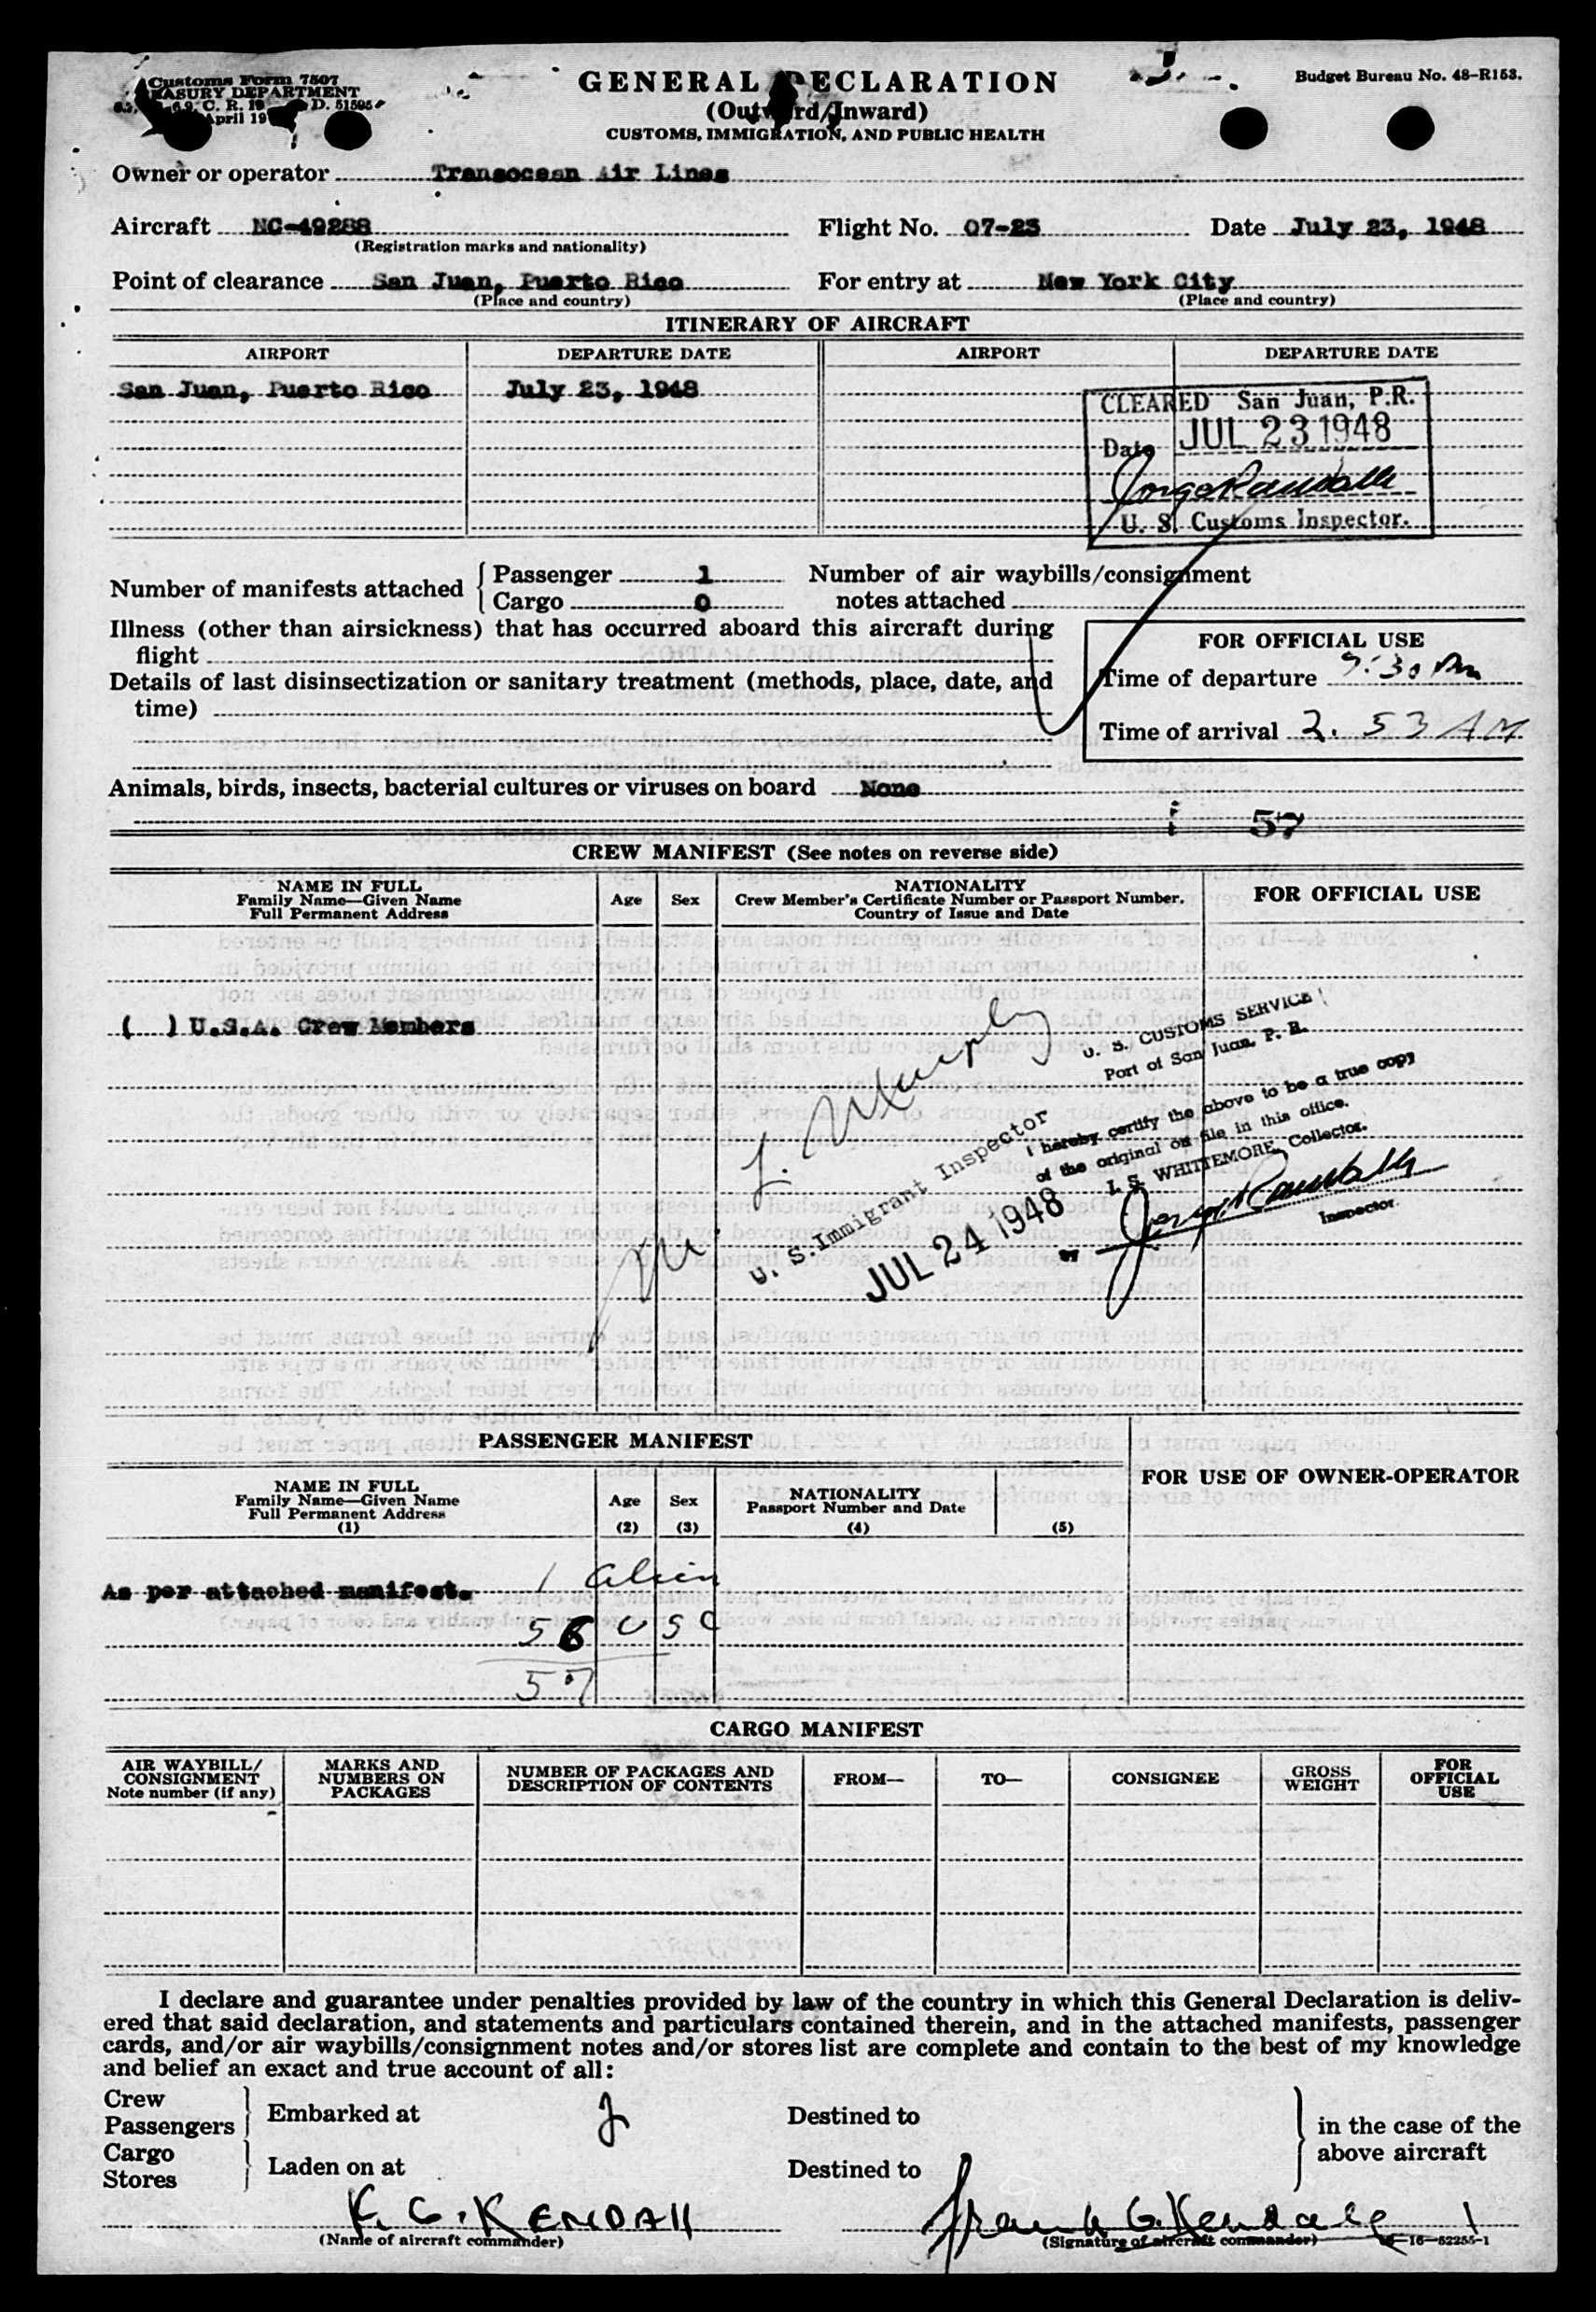 Customs Form 7507
TREASURY DEPARTMENT
C. R. D. 51595
April 19
GENERAL DECLARATION
(Outward/Inward)
CUSTOMS, IMMIGRATION, AND PUBLIC HEALTH
Budget Bureau No. 48-R153.
Owner or operator Transocean Air Lines
Aircraft NC-49288 Flight No. 07-23 Date July 23, 1948
(Registration marks and nationality)
Point of clearance San Juan, Puerto Rico For entry at New York City
(Place and country) (Place and country)
ITINERARY OF AIRCRAFT
AIRPORT DEPARTURE DATE AIRPORT DEPARTURE DATE
San Juan, Puerto Rico July 23, 1948
CLEARED San Juan, P.R.
Date JUL 23 1948
U. S. Customs Inspector.
Number of manifests attached { Passenger 1
Cargo 0
Number of air waybills/consignment
notes attached
Illness (other than airsickness) that has occurred aboard this aircraft during
flight
Details of last disinsectization or sanitary treatment (methods, place, date, and
time)
FOR OFFICIAL USE
Time of departure 9:30 Pm
Time of arrival 2.53 AM
Animals, birds, insects, bacterial cultures or viruses on board None
57
CREW MANIFEST (See notes on reverse side)
NAME IN FULL
Family Name—Given Name
Full Permanent Address
Age Sex
NATIONALITY
Crew Member's Certificate Number or Passport Number.
Country of Issue and Date
FOR OFFICIAL USE
( ) U.S.A. Crew Members
J. Murphy
U. S. Immigrant Inspector
JUL 24 1948
U. S. CUSTOMS SERVICE
Port of San Juan, P. R.
I hereby certify the above to be a true copy
of the original on file in this office.
I. S. WHITTEMORE, Collector.
BY
Inspector.
PASSENGER MANIFEST
FOR USE OF OWNER-OPERATOR
NAME IN FULL
Family Name—Given Name
Full Permanent Address
(1)
Age
(2)
Sex
(3)
NATIONALITY
Passport Number and Date
(4) (5)
As per attached manifest. 1 alien
56 USC
57
CARGO MANIFEST
AIR WAYBILL/
CONSIGNMENT
Note number (if any)
MARKS AND
NUMBERS ON
PACKAGES
NUMBER OF PACKAGES AND
DESCRIPTION OF CONTENTS
FROM—
TO—
CONSIGNEE
GROSS
WEIGHT
FOR
OFFICIAL
USE
I declare and guarantee under penalties provided by law of the country in which this General Declaration is deliv-
ered that said declaration, and statements and particulars contained therein, and in the attached manifests, passenger
cards, and/or air waybills/consignment notes and/or stores list are complete and contain to the best of my knowledge
and belief an exact and true account of all:
Crew
Passengers } Embarked at Destined to
Cargo
Stores } Laden on at Destined to
in the case of the
above aircraft
F. G. KENDAll Frank G. Kendall
(Name of aircraft commander) (Signature of aircraft commander) 16—52255-1